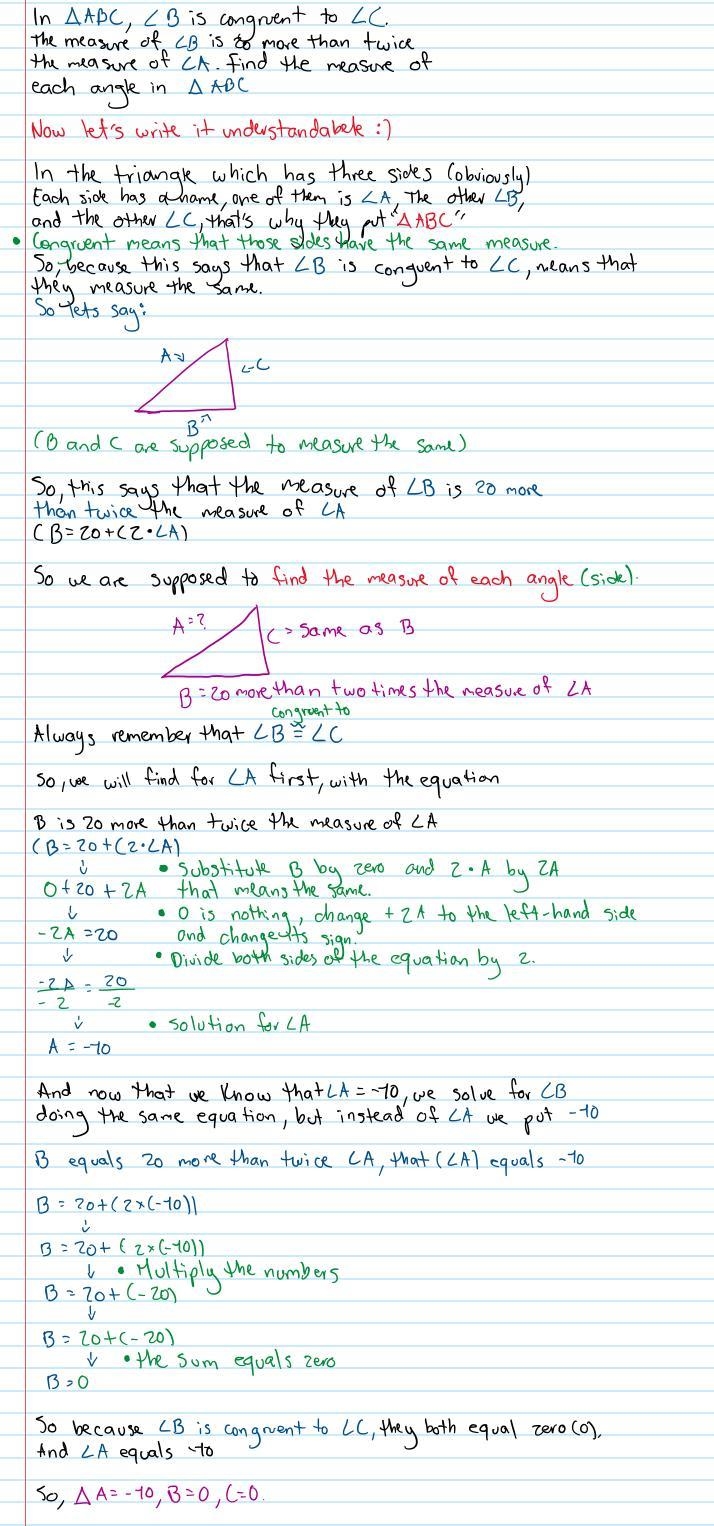 In ΔABC, ∠B is congruent to ∠C.
The measure of ∠B is 20 more than twice
the measure of ∠A. Find the measure of
each angle in Δ ABC
Now let's write it understandabele :)
In the triangle which has three sides (obviously)
Each side has a name, one of them is ∠A, The other ∠B,
and the other ∠C, that's why they put "ΔABC"
• Congruent means that those sides have the same measure.
So, because this says that ∠B is conguent to ∠C, means that
they measure the same.
So lets say:
A
C
B
(B and C are supposed to measure the same)
So, this says that the measure of ∠B is 20 more
than twice the measure of ∠A
(B=20+(2·∠A)
So we are supposed to find the measure of each angle (side).
A=?
C > Same as B
B = 20 more than two times the measure of ∠A
congruent to
Always remember that ∠B ≅ ∠C
So, we will find for ∠A first, with the equation
B is 20 more than twice the measure of ∠A
(B=20+(2·∠A)
↓ • Substitute B by zero and 2·A by 2A
0+20+2A that means the same.
↓ • 0 is nothing, change +2A to the left-hand side
-2A=20 and change its sign.
↓ • Divide both sides of the equation by 2.
-2A/-2 = 20/-2
↓ • Solution for ∠A
A = -10
And now that we know that ∠A = -10, we solve for ∠B
doing the same equation, but instead of ∠A we put -10
B equals 20 more than twice ∠A, that (∠A) equals -10
B = 20+(2×(-10))
↓
B = 20+ (2×(-10))
↓ • Multiply the numbers
B = 20+(-20)
↓
B = 20+(-20)
↓ • the sum equals zero
B=0
So because ∠B is congruent to ∠C, they both equal zero (0),
And ∠A equals -10
So, Δ A=-10, B=0, C=0.